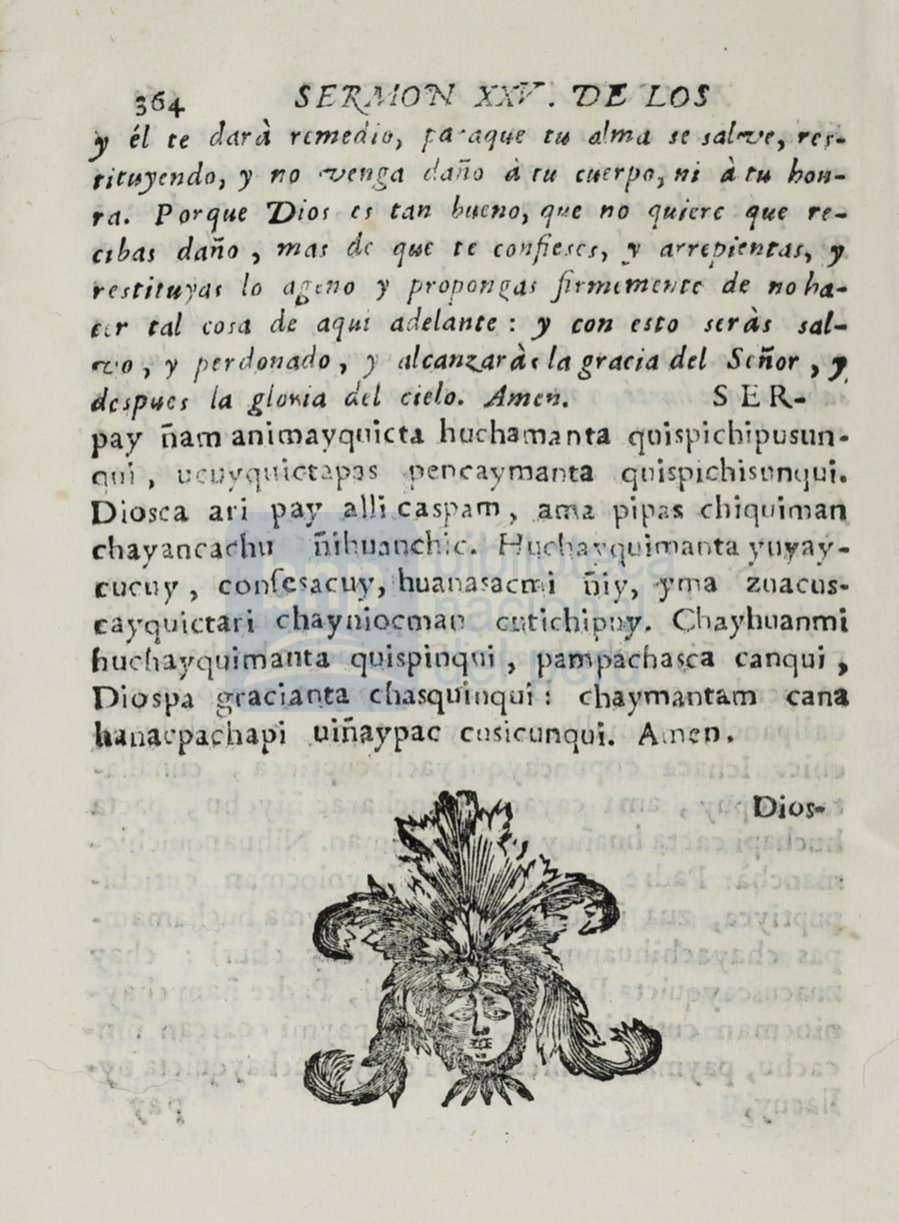 364 SERMON XXV. DE LOS
y él te darà remedio, paraque tu alma se salve, res-
tituyendo, y no venga daño à tu cuerpo, ni à tu hon-
ra. Porque Dios es tan bueno, que no quiere que re-
cibas daño, mas de que te confieses, y arrepientas, y
restituyas lo ageno y propongas firmemente de no ha-
cer tal cosa de aqui adelante : y con esto seràs sal-
vo, y perdonado, y alcanzaràs la gracia del Señor, y
despues la gloria del cielo. Amen. SER-
pay ñam animayquicta huchamanta quispichipusun-
qui, ucuyquictapas pencaymanta quispichisunqui.
Diosca ari pay alli caspam, ama pipas chiquiman
chayancachu ñihuanchic. Huchayquimanta yuyay-
cucuy, confesacuy, huanasacmi ñiy, yma zuacus-
cayquictari chayniocman cutichipuy. Chayhuanmi
huchayquimanta quispinqui, pampachasca canqui,
Diospa gracianta chasquinqui : chaymantam cana
hanacpachapi uiñaypac cusicunqui. Amen.
Dios-
biblioteca
nacional
del Perú